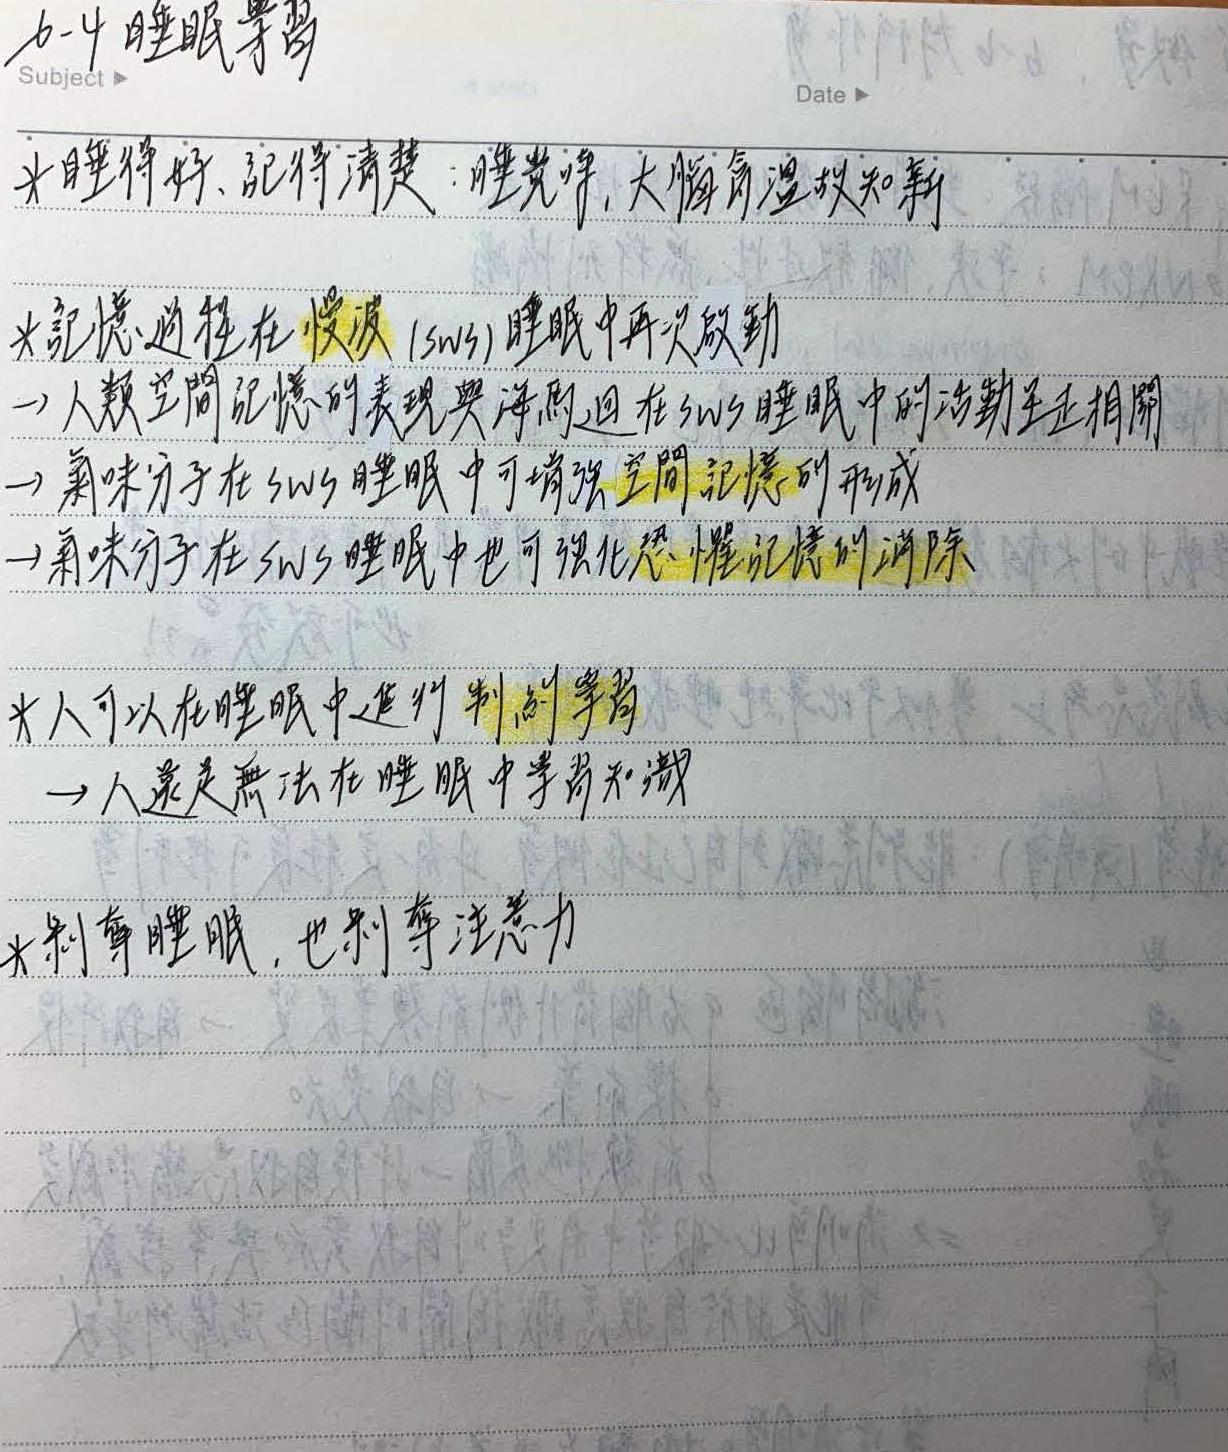 6-4 睡眠學習
Subject ▶
Date ▶
*睡得好、記得清楚：睡覺時，大腦會溫故知新
*記憶過程在慢波(SWS)睡眠中再次啟動
→人類空間記憶的表現與海馬迴在SWS睡眠中的活動呈正相關
→氣味分子在SWS睡眠中可增強空間記憶的形成
→氣味分子在SWS睡眠中也可強化恐懼記憶的消除
*人可以在睡眠中進行制約學習
→人還是無法在睡眠中學習知識
*剝奪睡眠，也剝奪注意力